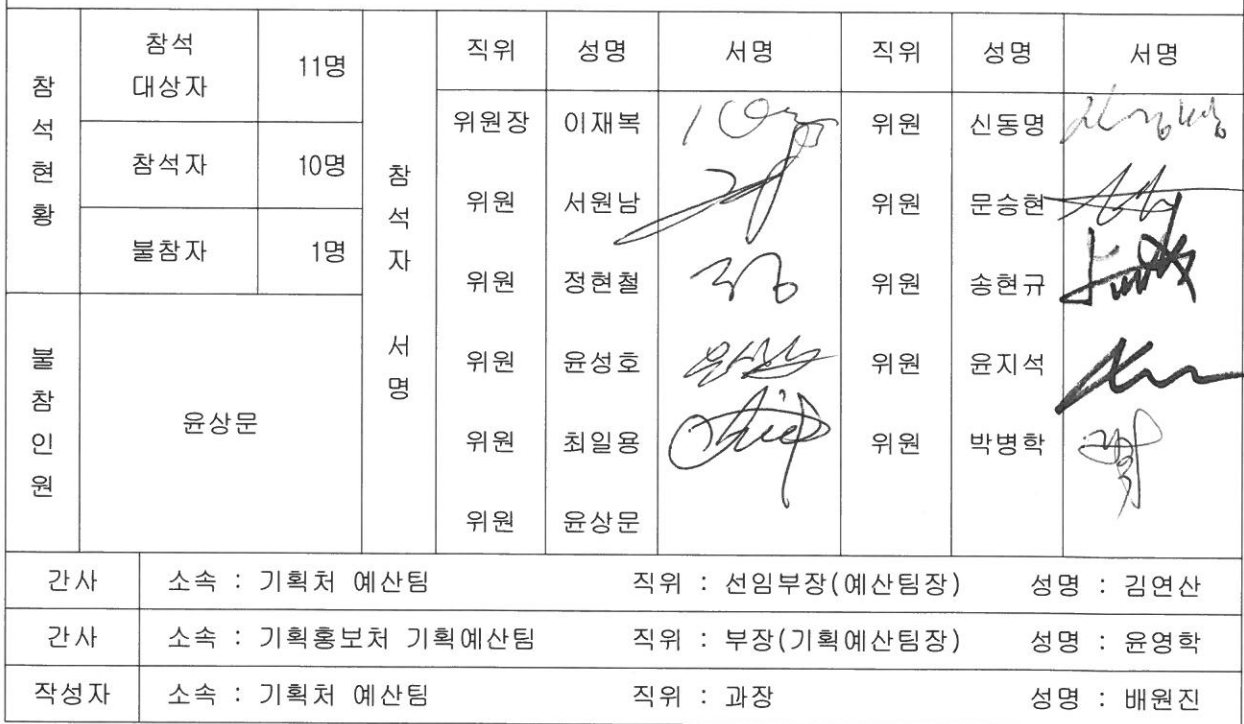 참석현황
참석
대상자
11명
참석자
10명
불참자
1명
불참인원
윤상문
참석자 서명
직위 성명 서명 직위 성명 서명
위원장 이재복 위원 신동명
위원 서원남 위원 문승현
위원 정현철 위원 송현규
위원 윤성호 위원 윤지석
위원 최일용 위원 박병학
위원 윤상문
간사 소속 : 기획처 예산팀 직위 : 선임부장(예산팀장) 성명 : 김연산
간사 소속 : 기획홍보처 기획예산팀 직위 : 부장(기획예산팀장) 성명 : 윤영학
작성자 소속 : 기획처 예산팀 직위 : 과장 성명 : 배원진